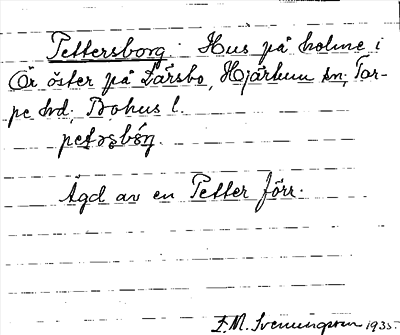 Pettersborg. Hus på holme i
Ör öster på Lärsbo, Hjärtum sn, Tor-
pe hd; Bohus l.
Ägd av en Petter förr.
S. M. Svenungsson 1935.